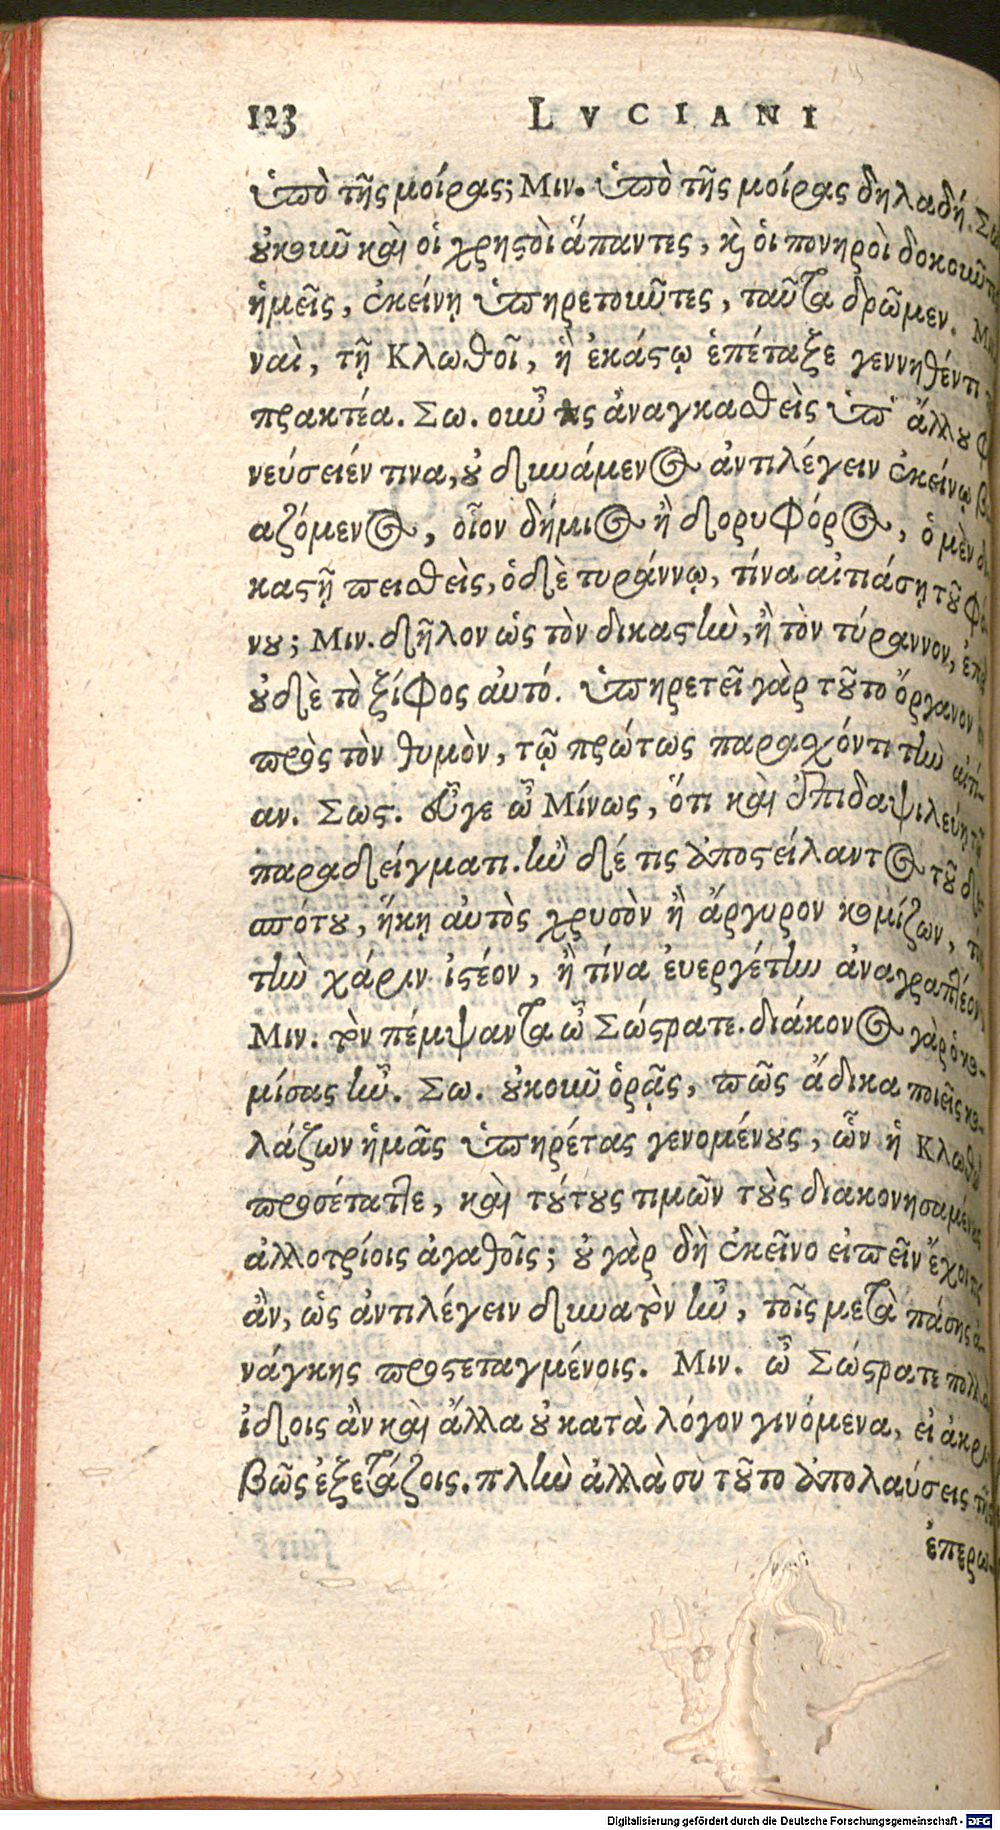 123 LVCIANI
ὑπὸ τῆς μοίρας; Μιν. ὑπὸ τῆς μοίρας δηλαδή. Σω
οὐκοῦν καὶ οἱ χρηστοὶ ἅπαντες, καὶ οἱ πονηροὶ δοκοῦντες
ἡμεῖς, ἐκείνῃ ὑπηρετοῦντες, ταῦτα δρῶμεν. Μιν
ναὶ, τῇ Κλωθοῖ, ἣ ἑκάστῳ ἐπέταξε γεννηθέντι
πρακτέα. Σω. οὖν τις ἀναγκασθεὶς ὑπ' ἄλλου φ
νεύσειέν τινα, οὐ δυνάμενος ἀντιλέγειν ἐκείνῳ β
αζόμενος, οἷον δήμιος ἢ δορυφόρος, ὁ μὲν δι
καστῇ πειθεὶς, ὁ δὲ τυράννῳ, τίνα αἰτιάσῃ τοῦ φό
νου; Μιν. δῆλον ὡς τὸν δικαστὴν, ἢ τὸν τύραννον, ἐπεὶ
οὐδὲ τὸ ξίφος αὐτό. ὑπηρετεῖ γὰρ τοῦτο ὄργανον
πρὸς τὸν θυμὸν, τῷ πρώτως παραχόντι τὴν αἰτί-
αν. Σως. εὖγε ὦ Μίνως, ὅτι καὶ ἐπιδαψιλεύῃ τῷ
παραδείγματι. ἢν δέ τις ἀποστείλαντος τοῦ δεσ
πότου, ἥκῃ αὐτὸς χρυσὸν ἢ ἄργυρον κομίζων, τίνι
τὴν χάριν ἰστέον, ἢ τίνα ἐυεργέτην ἀναγραπτέον;
Μιν. τὸν πέμψαντα ὦ Σώςρατε. διάκονος γὰρ ὁ κο-
μίσας ἦν. Σω. οὐκοῦν ὁρᾷς, πῶς ἄδικα ποιεῖς κο-
λάζων ἡμᾶς ὑπηρέτας γενομένους, ὧν ἡ Κλωθὼ
προσέταττε, καὶ τούτους τιμῶν τοὺς διακονησαμένους
ἀλλοτρίοις ἀγαθοῖς; οὐ γὰρ δὴ ἐκεῖνο εἰπεῖν ἔχοι τις
ἂν, ὡς ἀντιλέγειν δυνατὸν ἦν, τοῖς μετὰ πάσης ἀ-
νάγκης προςεταγμένοις. Μιν. ὦ Σώςρατε πολλὰ
ἴδοις ἂν καὶ ἄλλα οὐ κατὰ λόγον γινόμενα, εἰ ἀκρι
βῶς ἐξετάζοις. πλὴν ἀλλὰ σὺ τοῦτο ἀπολαύσεις τῆς
ἐπερω-
Digitalisierung gefördert durch die Deutsche Forschungsgemeinschaft - DFG